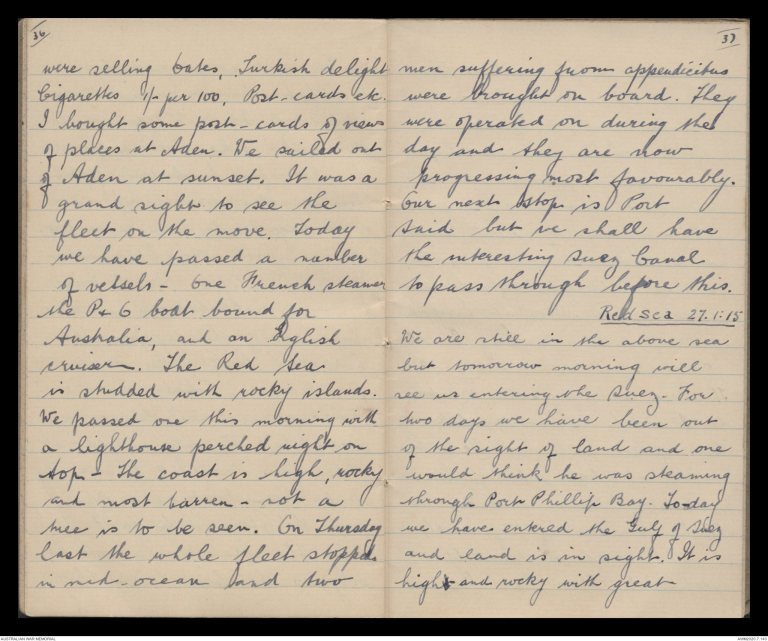 36
were selling Dates, Turkish delight
Cigarettes 1/- per 100, Post-cards etc.
I bought some post-cards of views
of places at Aden. We sailed out
of Aden at sunset. It was a
grand sight to see the
fleet on the move. Today
we have passed a number
of vessels - One French steamer
the P & O boat bound for
Australia, and an English
cruiser. The Red Sea
is studded with rocky islands.
We passed one this morning with
a lighthouse perched right on
top - The coast is high, rocky
and most barren - not a
tree is to be seen. On Thursday
last the whole fleet stopped
in mid-ocean and two
37
men suffering from appendicitus
were brought on board. They
were operated on during the
day and they are now
progressing most favourably.
Our next stop is Port
Said but we shall have
the interesting Suez Canal
to pass through before this.
Red Sea 27.1.15
We are still in the above sea
but tomorrow morning will
see us entering the Suez. For
two days we have been out
of the sight of land and one
would think he was steaming
through Port Phillip Bay. To-day
we have entered the Gulf of Suez
and land is in sight. It is
high and rocky with great
AUSTRALIAN WAR MEMORIAL